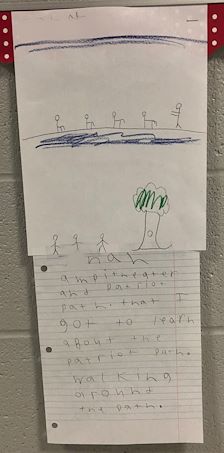 nah
ampitheater
and patriot
path. that I
got to learn
about the
patriot path.
walking
around
the path.